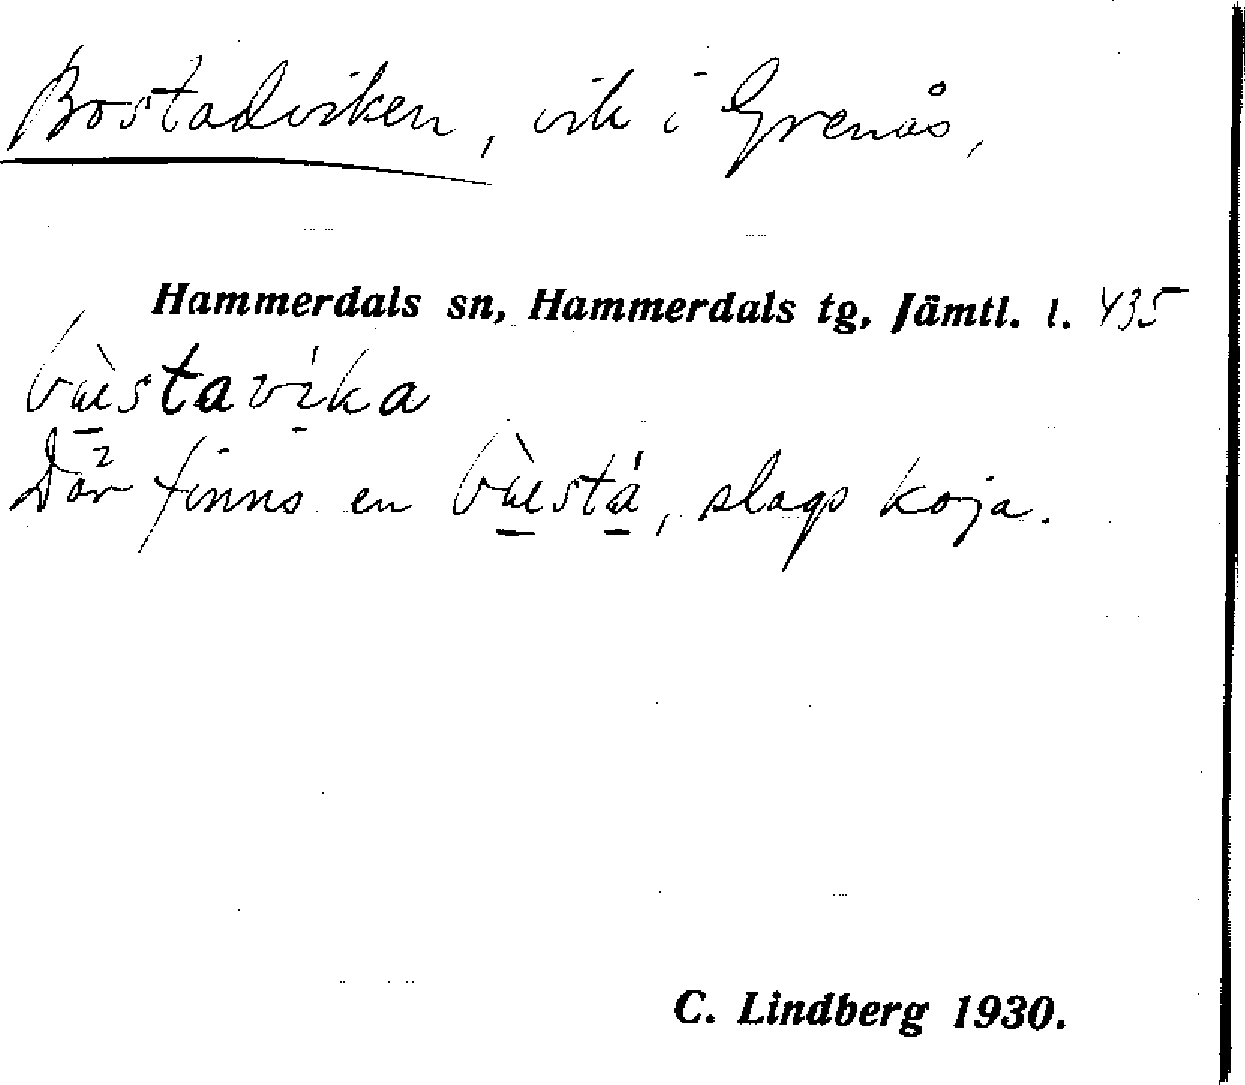 Bostadviken, vik i Grenås,
Hammerdals sn, Hammerdals tg, Jämtl. l. 435
bùstavíka
Där finns en bùstá, slags koja.
C. Lindberg 1930.